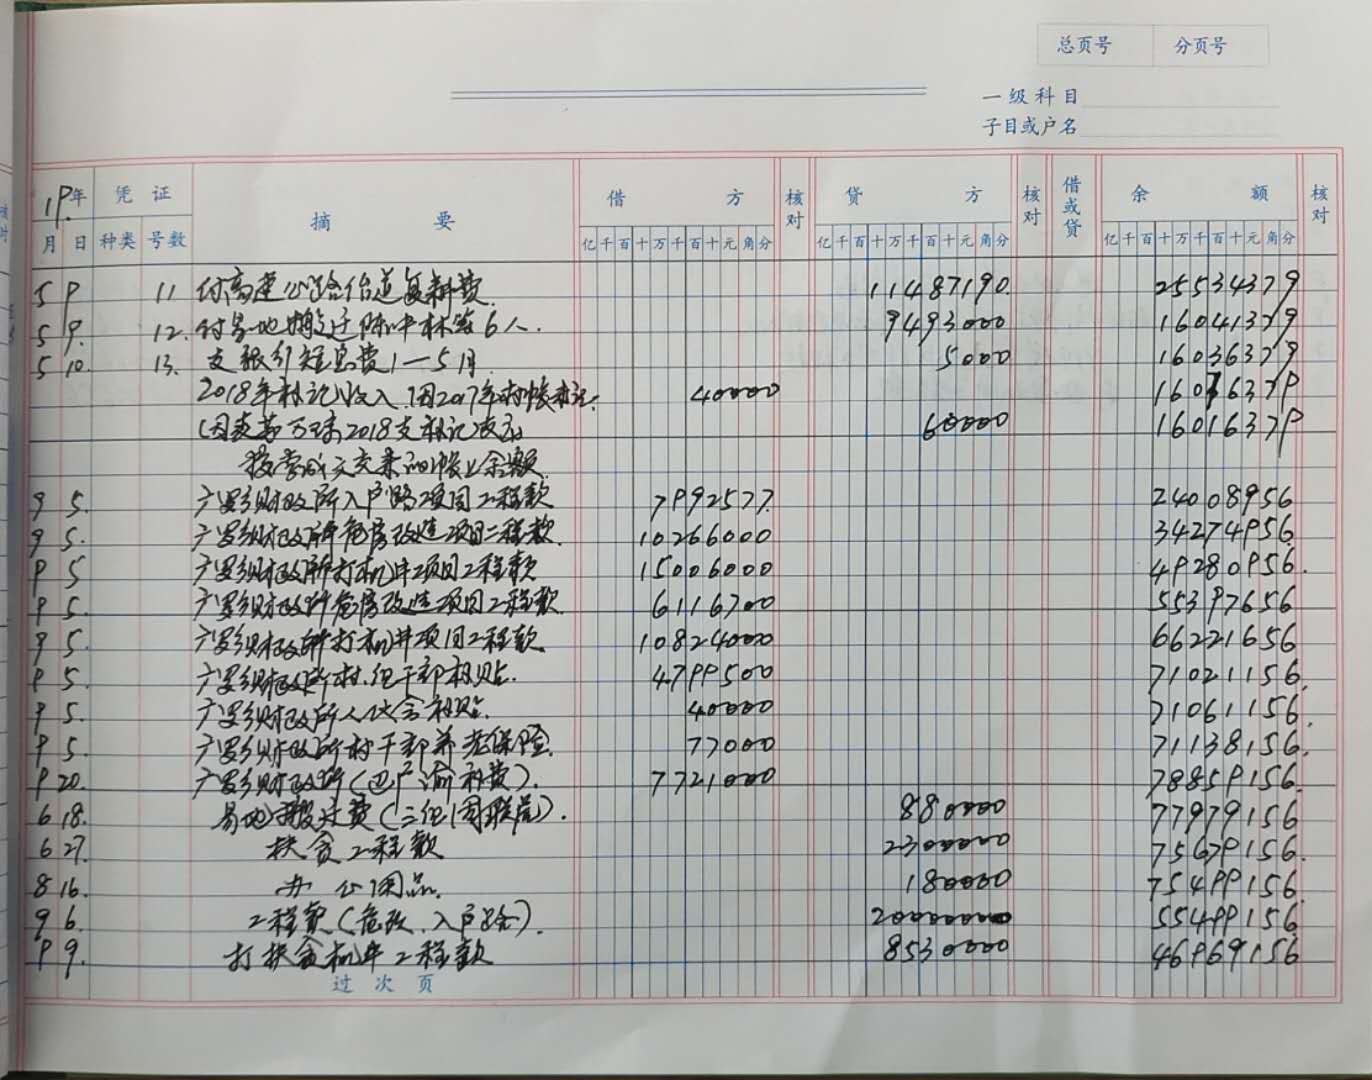 总页号 分页号
一级科目
子目或户名
19年 凭证 摘要 借方 核对 贷方 核对 借或贷 余额 核对
月 日 种类 号数 亿千百十万千百十元角分 亿千百十万千百十元角分 亿千百十万千百十元角分
5 9 11 付高速公路便道复耕费. 11487190 25534379
5 9. 12. 付易地搬迁陈中林等6人. 9493000 16041379
5 10. 13. 支银行短息费1—5月 5000 16036379
2018年补记收入.(因2017年 40000 16076379
2018支补记 60000 16016379
交来 帐上余额.
9 5. 广罗乡财政所入户路项目工程款 7992577 24008956
9 5. 广罗乡财政所危房改造项目工程款. 10266000 34274956
9 5 广罗乡财政所打机井项目工程款 15006000 49280956.
9 5. 广罗乡财政所危房改造项目工程款. 6116700 55397656
9 5. 广罗乡财政所打机井项目工程款 10824000 66221656
9 5. 广罗乡财政所村.组干部补贴. 4799500 71021156
9 5. 广罗乡财政所人代会补贴. 40000 71061156.
9 5. 广罗乡财政所村干部养老保险. 77000 71138156.
9 20. 广罗乡财政所(巴广渝补费). 7721000 78859156.
6 18. 易地搬迁费(二组周联 ). 880000 77979156
6 27. 扶贫工程款 2300000 75679156.
8 16. 办公用品. 180000 75499156
9 6. 工程费(危改.入户路). 20000000 55499156
9 9. 打扶贫机井工程款 8530000 46969156
过次页